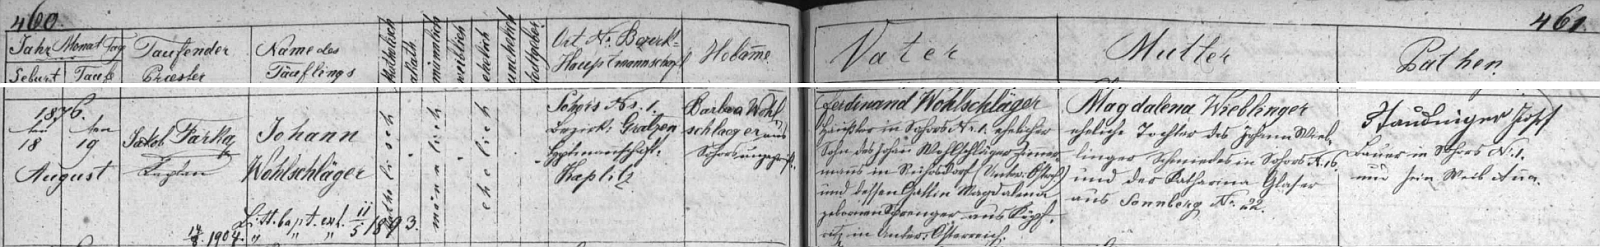 460.
461.
Jahr Monat Tag
Geburt Taufe
Taufender
Priester
Name des
Täuflings
katholisch
akath.
männlich
weiblich
ehelich
unehelich
todtgebor.
Ort Nr. Bezirk=
Hauptmannschaft
Hebamme
Vater
Mutter
Pathen.
1876.
ten ten
18 19
August
Jakob Farka
Kaplan
Johann
Wohlschläger
Lit. bapt. ext. 11/5 1893.
1904.
katholisch
männlich
ehelich
Sohors No. 1.
Bezirk: Gratzen
Hauptmannschaft.
Kaplitz
Barbara Wohl
schlaeger aus
Sohors ungeprüft.
Ferdinand Wohlschläger
Häusler in Sohors Nr. 1. ehelicher
Sohn des Johann Wohlschläger
in (Unter. Österr.)
und dessen Gattin Magdalena
gebornen Sprenger aus
in Unter. Österreich.
Magdalena Wieblinger
eheliche Tochter des Johann Wieb
linger Schmiedes in Sohors N. 16.
und der Katharina Glaser
aus Sonnberg Nr. 22.
Staudinger Josef
Bauer in Sohors N. 1.
und sein Weib Anna.